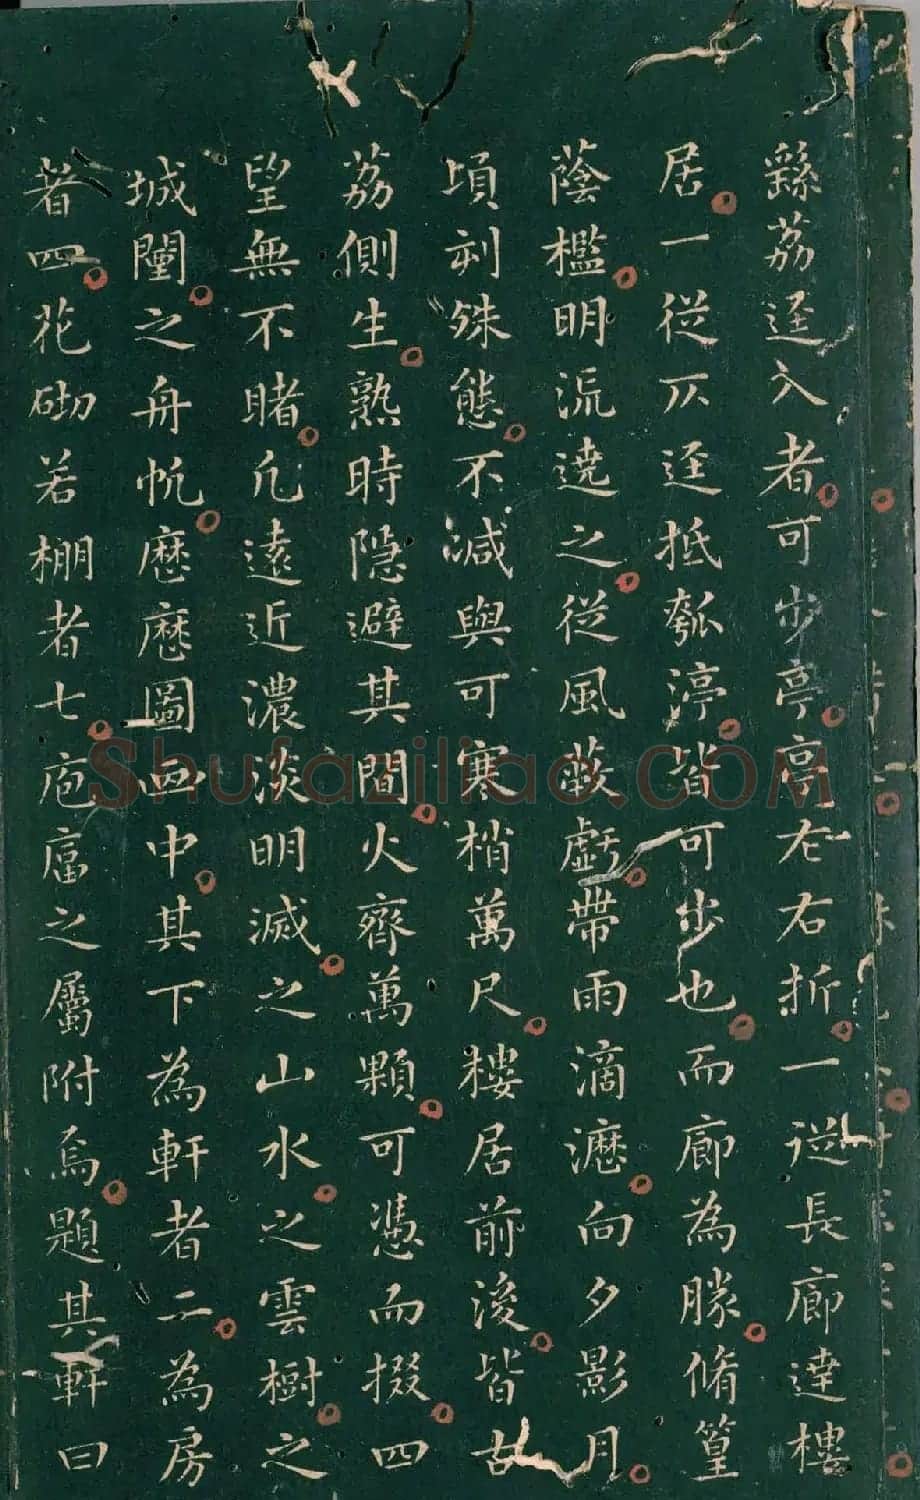 繇荔逕入者可步亭亭左右折一從長廊達樓
居一從仄逕抵瓠渟皆可步也而廊為勝脩篁
蔭檻明流遶之從風蔽虧帶雨滴瀝向夕影月
頃刻殊態不減與可寒梢萬尺樓居前後皆古
荔側生熟時隱避其間火齊萬顆可憑而掇四
望無不睹凡遠近濃淡明滅之山水之雲樹之
城闉之舟帆歷歷圖画中其下為軒者二為房
者四花砌若棚者七庖之屬附焉題其軒曰
Shufaziliao.COM